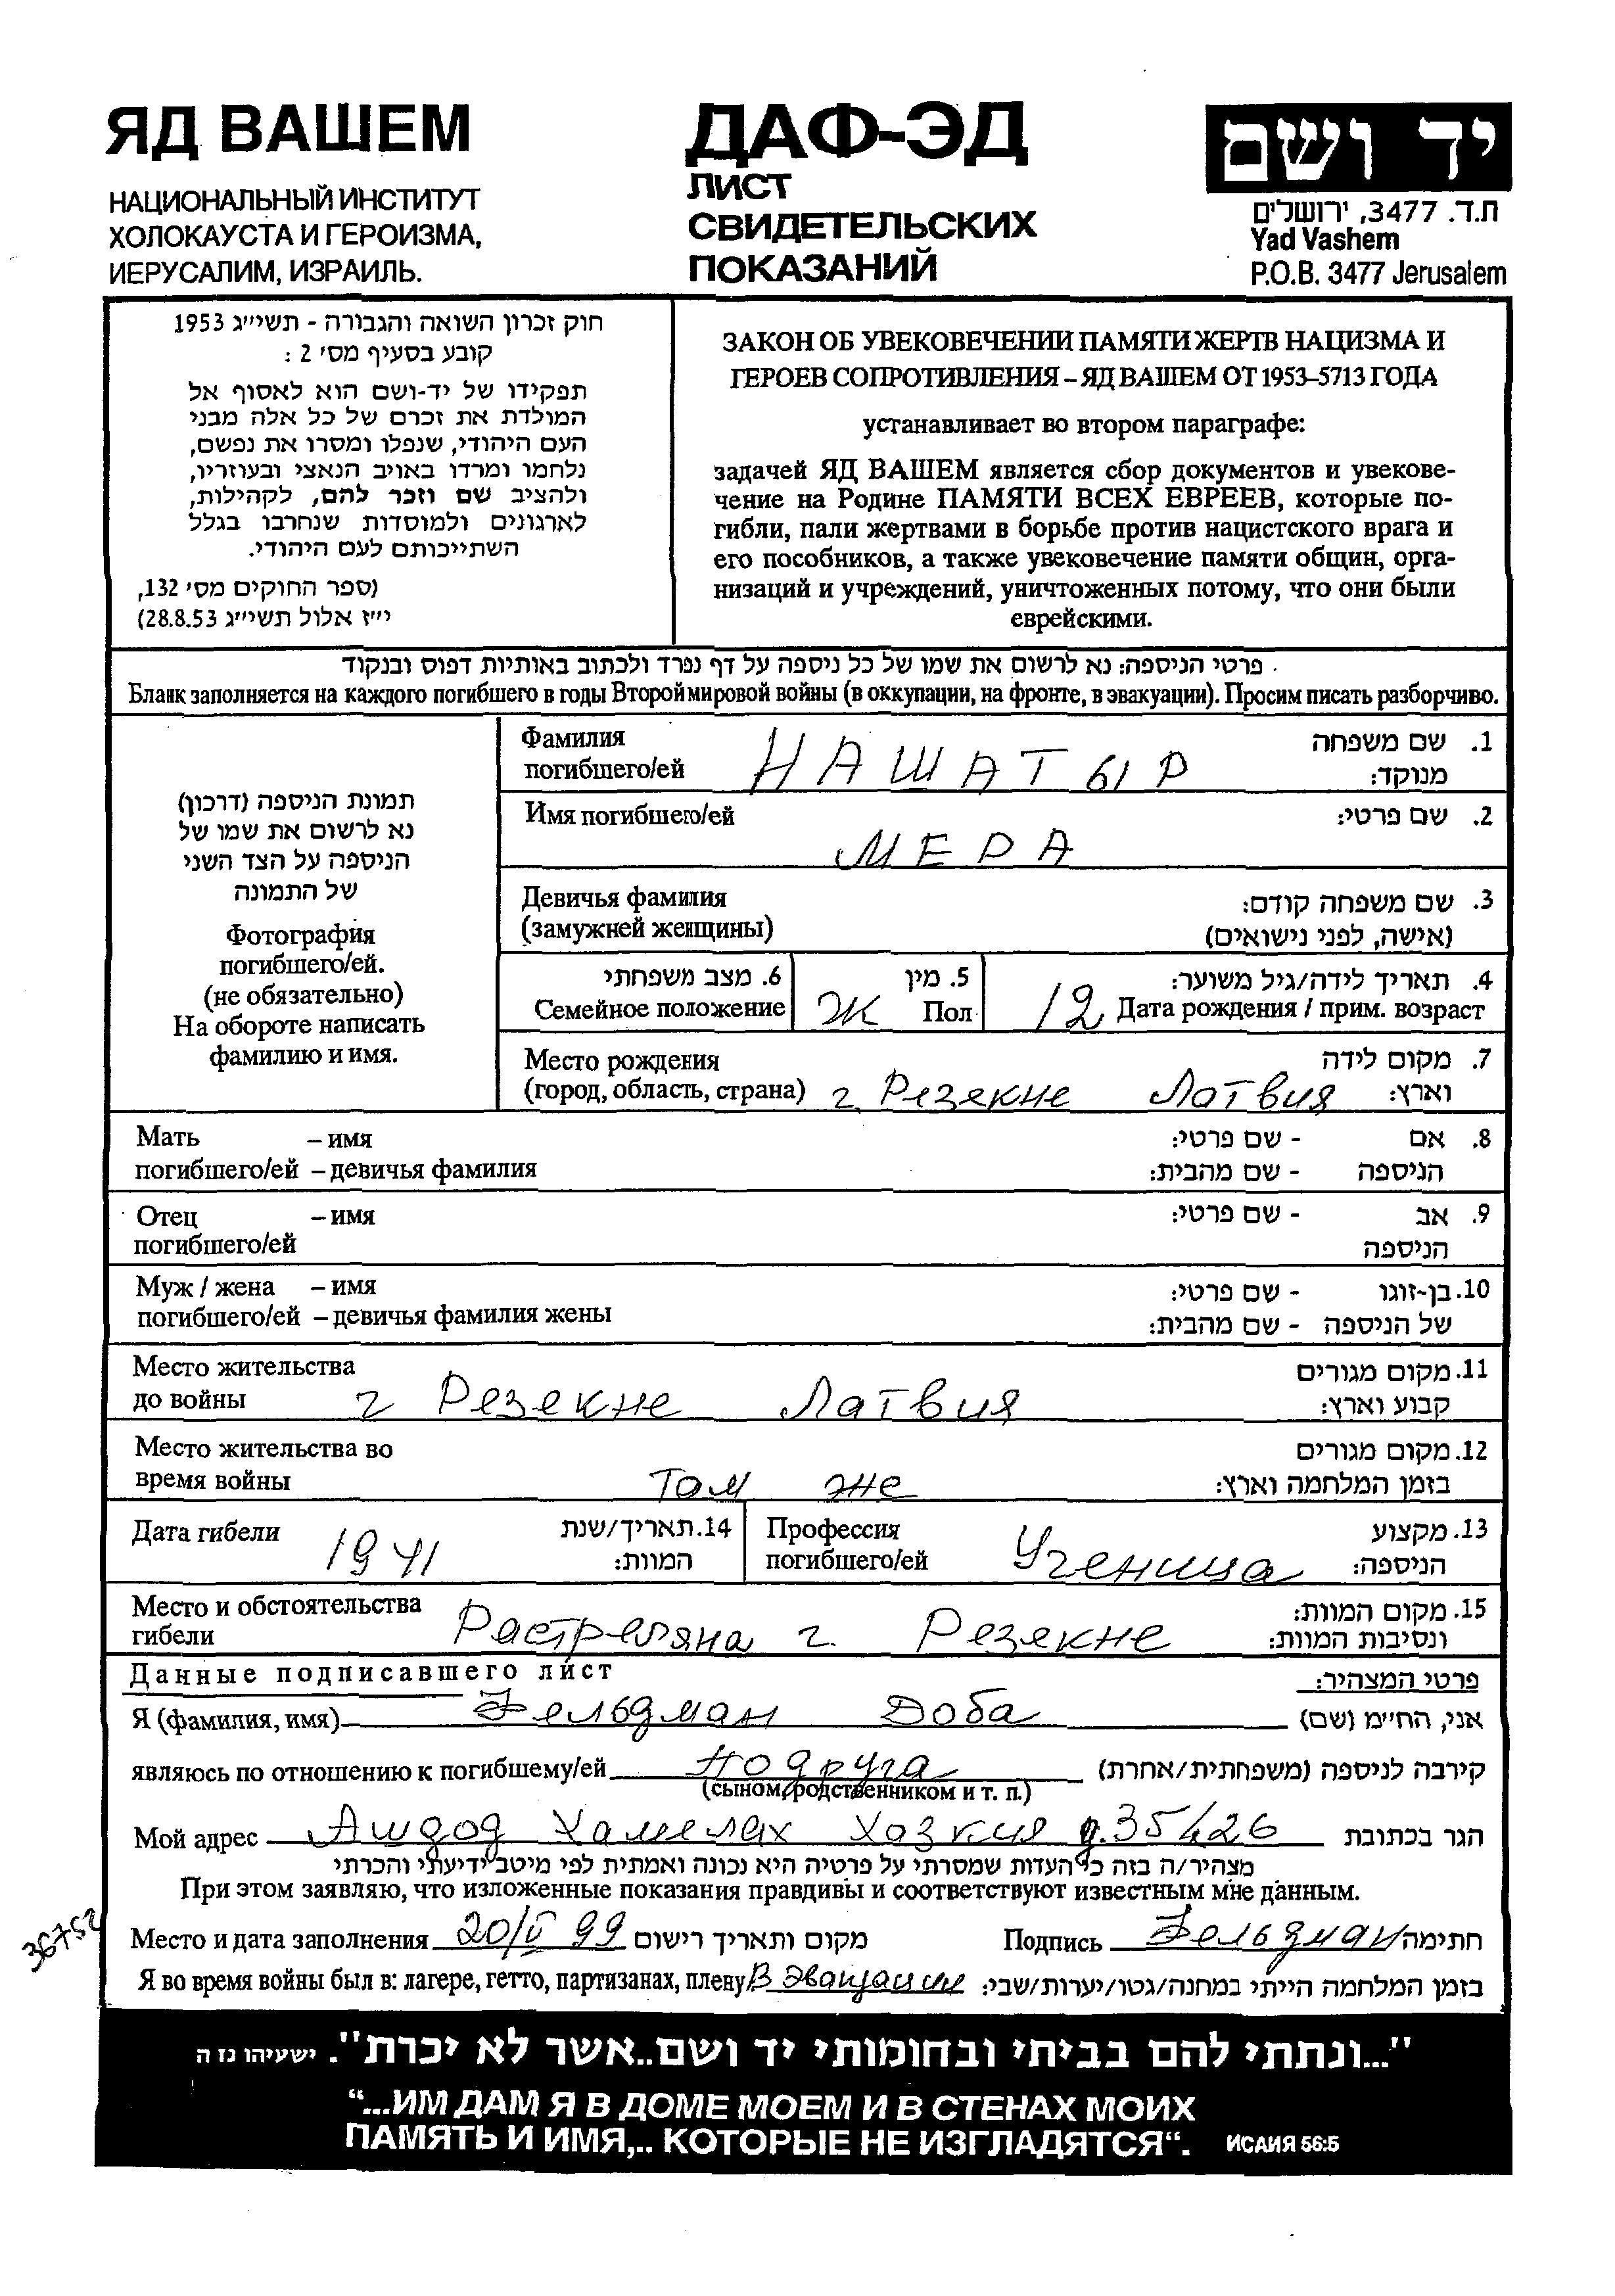 ЯД ВАШЕМ
НАЦИОНАЛЬНЫЙ ИНСТИТУТ
ХОЛОКАУСТА И ГЕРОИЗМА,
ИЕРУСАЛИМ, ИЗРАИЛЬ.
ДАФ-ЭД
ЛИСТ
СВИДЕТЕЛЬСКИХ
ПОКАЗАНИЙ
יד ושם
ת.ד. 3477, ירושלים
Yad Vashem
P.O.B. 3477 Jerusalem
חוק זכרון השואה והגבורה - תשי״ג 1953
קובע בסעיף מס׳ 2 :
תפקידו של יד-ושם הוא לאסוף אל
המולדת את זכרם של כל אלה מבני
העם היהודי, שנפלו ומסרו את נפשם,
נלחמו ומרדו באויב הנאצי ובעוזריו,
ולהציב שם וזכר להם, לקהילות,
לארגונים ולמוסדות שנחרבו בגלל
השתייכותם לעם היהודי.
(ספר החוקים מס׳ 132,
י״ז אלול תשי״ג 28.8.53)
ЗАКОН ОБ УВЕКОВЕЧЕНИИ ПАМЯТИ ЖЕРТВ НАЦИЗМА И
ГЕРОЕВ СОПРОТИВЛЕНИЯ – ЯД ВАШЕМ ОТ 1953–5713 ГОДА
устанавливает во втором параграфе:
задачей ЯД ВАШЕМ является сбор документов и увекове-
чение на Родине ПАМЯТИ ВСЕХ ЕВРЕЕВ, которые по-
гибли, пали жертвами в борьбе против нацистского врага и
его пособников, а также увековечение памяти общин, орга-
низаций и учреждений, уничтоженных потому, что они были
еврейскими.
פרטי הניספה: נא לרשום את שמו של כל ניספה על דף נפרד ולכתוב באותיות דפוס ובנקוד
Бланк заполняется на каждого погибшего в годы Второй мировой войны (в оккупации, на фронте, в эвакуации). Просим писать разборчиво.
תמונת הניספה (דרכון)
נא לרשום את שמו של
הניספה על הצד השני
של התמונה
Фотография
погибшего/ей.
(не обязательно)
На обороте написать
фамилию и имя.
Фамилия 1. שם משפחה
погибшего/ей НАШАТЫР מנוקד:
Имя погибшего/ей 2. שם פרטי:
МЕРА
Девичья фамилия 3. שם משפחה קודם:
(замужней женщины) (אישה, לפני נישואים)
6. מצב משפחתי 5. מין 4. תאריך לידה/גיל משוער:
Семейное положение Ж Пол 12 Дата рождения / прим. возраст
Место рождения 7. מקום לידה
(город, область, страна) г. Резекне Латвия וארץ:
Мать – имя 8. אם - שם פרטי:
погибшего/ей – девичья фамилия הניספה - שם מהבית:
Отец – имя 9. אב - שם פרטי:
погибшего/ей הניספה
Муж / жена – имя 10. בן-זוגו - שם פרטי:
погибшего/ей – девичья фамилия жены של הניספה - שם מהבית:
Место жительства 11. מקום מגורים
до войны г Резекне Латвия קבוע וארץ:
Место жительства во 12. מקום מגורים
время войны там же בזמן המלחמה וארץ:
Дата гибели 1941 14. תאריך/שנת המוות:
Профессия погибшего/ей Ученица 13. מקצוע הניספה:
Место и обстоятельства 15. מקום המוות:
гибели Растреляна г. Резекне ונסיבות המוות:
Данные подписавшего лист פרטי המצהיר:
Я (фамилия, имя) Фельдман Доба אני, החי״מ (שם)
являюсь по отношению к погибшему/ей подруга קירבה לניספה (משפחתית/אחרת)
(сыном, родственником и т. п.)
Мой адрес Ашдод Хамелах Хазкия д. 35/26 הגר בכתובת
מצהיר/ה בזה כי העדות שמסרתי על פרטיה היא נכונה ואמתית לפי מיטב ידיעתי והכרתי
При этом заявляю, что изложенные показания правдивы и соответствуют известным мне данным.
36752
Место и дата заполнения 20/V 99 מקום ותאריך רישום Подпись Фельдман חתימה
Я во время войны был в: лагере, гетто, партизанах, плену В эвакуации בזמן המלחמה הייתי במחנה/גטו/יערות/שבי:
"...ונתתי להם בביתי ובחומותי יד ושם..אשר לא יכרת". ישעיהו נז ה
“...ИМ ДАМ Я В ДОМЕ МОЕМ И В СТЕНАХ МОИХ
ПАМЯТЬ И ИМЯ,.. КОТОРЫЕ НЕ ИЗГЛАДЯТСЯ“. ИСАИЯ 56:5